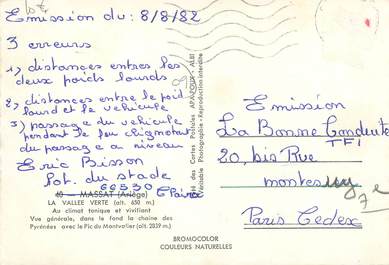 Emission du : 8/8/82
3 erreurs
1) distances entres les
deux poids lourds
2) distances entre le poid
lourd et le véhicule
3) passage du véhicule
pendant le feu clignotant
du passage a niveau
Eric Bisson
Lot. du stade
66530 Claira
40 - MASSAT (Ariège)
LA VALLEE VERTE (alt. 650 m.)
Au climat tonique et vivifiant
Vue générale, dans le fond la chaine des
Pyrénées avec le Pic du Montvalier (alt. 2839 m.)
Cartes Postales APA-POUX - ALBI
Véritable Photographie - Reproduction interdite
BROMOCOLOR
COULEURS NATURELLES
Emission
La Bonne Conduite
TF1
20, bis Rue
Paris Cedex